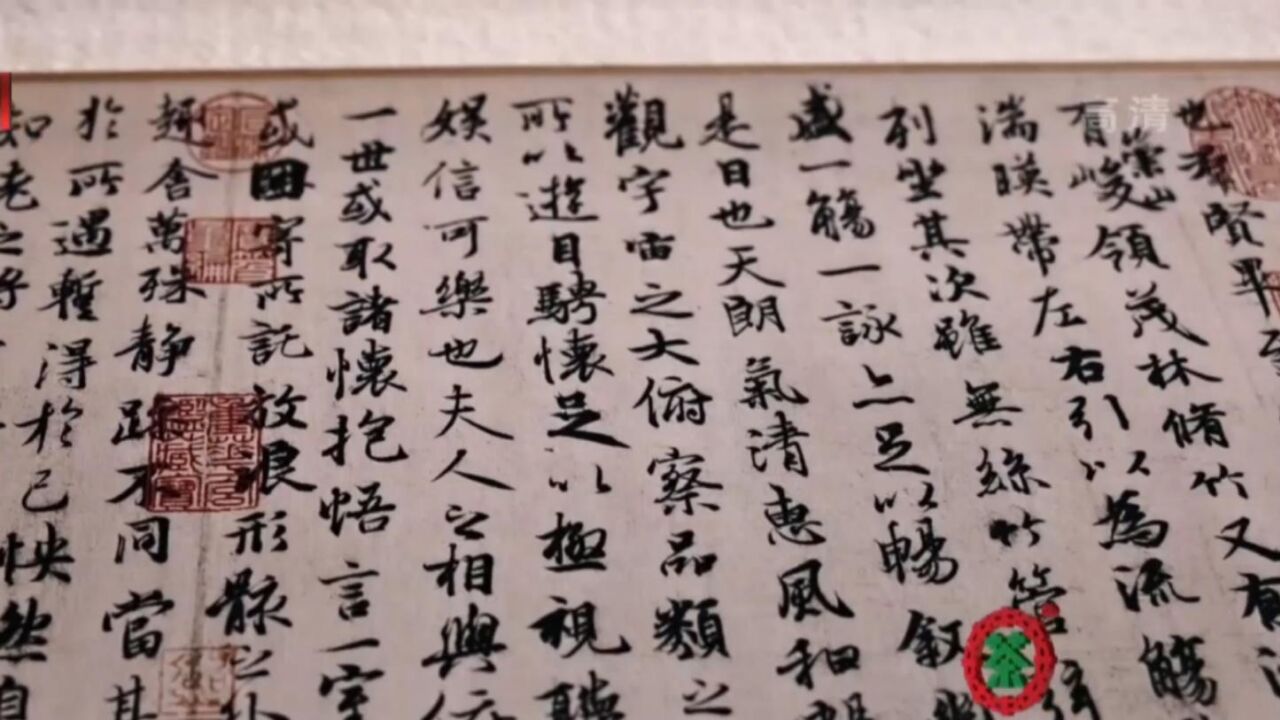 也羣賢畢至
有崇山峻領茂林脩竹又有清
湍暎帶左右引以為流觴
列坐其次雖無絲竹管弦
盛一觴一詠亦足以暢敘幽
是日也天朗氣清惠風和暢
觀宇宙之大俯察品類之
所以遊目騁懷足以極視聽
娛信可樂也夫人之相與俯
一世或取諸懷抱悟言一室
或因寄所託放浪形骸之外
趣舍萬殊静躁不同當其
於所遇暫得於己怏然自
知老之將
高清
茶